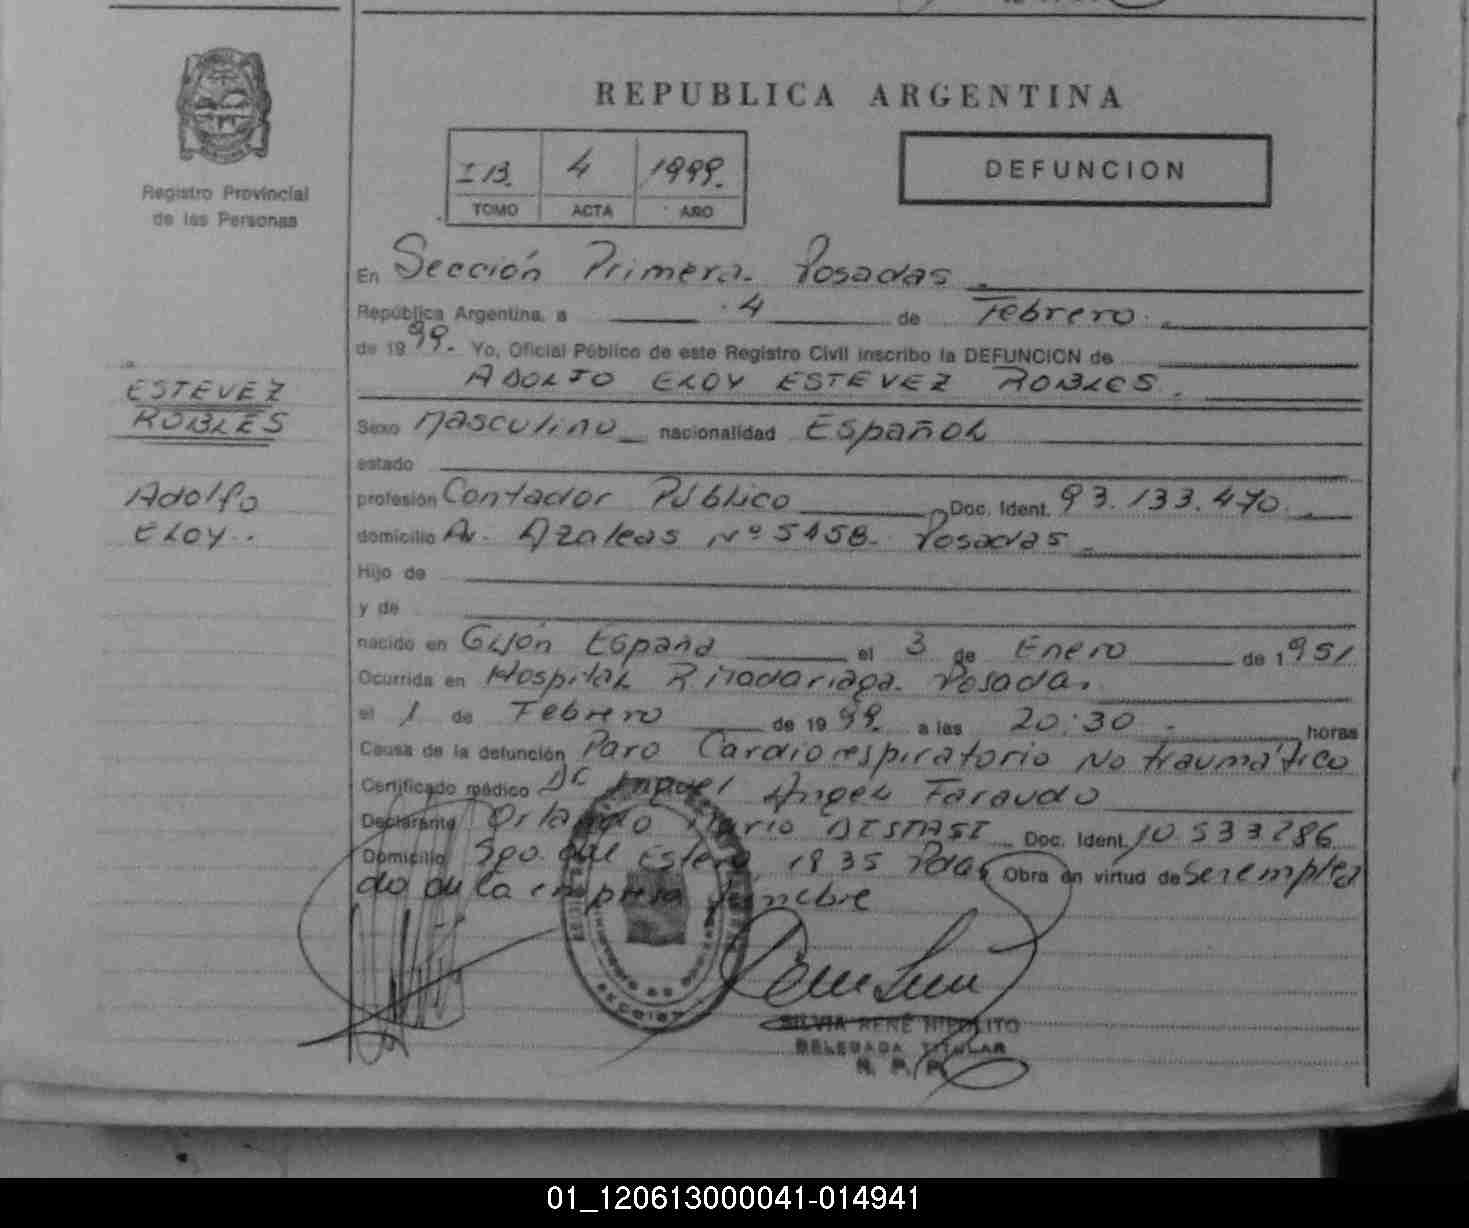 REPUBLICA ARGENTINA
Registro Provincial
de las Personas
I B. 4 1999.
TOMO ACTA AÑO
DEFUNCION
En Sección Primera. Posadas
República Argentina, a 4 de Febrero
de 1999. Yo, Oficial Público de este Registro Civil inscribo la DEFUNCION de
ADOLFO ELOY ESTEVEZ ROBLES
ESTEVEZ
ROBLES
Adolfo
ELOY
Sexo Masculino nacionalidad Español
estado
profesión Contador Público Doc. Ident. 93.133.470
domicilio Av. Azaleas Nº 5458. Posadas
Hijo de
y de
nacido en Gijón España el 3 de Enero de 1951
Ocurrida en Hospital R. Madariaga. Posadas
el 1 de Febrero de 1999. a las 20:30 horas
Causa de la defunción Paro Cardiorespiratorio No traumático
Certificado médico Dr Angel Faraudo
Declarante Orlando Mario Doc. Ident. 10.533286
Domicilio Sgo. del Estero 1835 Pdas Obra en virtud de Ser emplea
do de la empresa fúnebre
SILVIA RENÉ HIPOLITO
DELEGADA TITULAR
R. P. P.
01_120613000041-014941